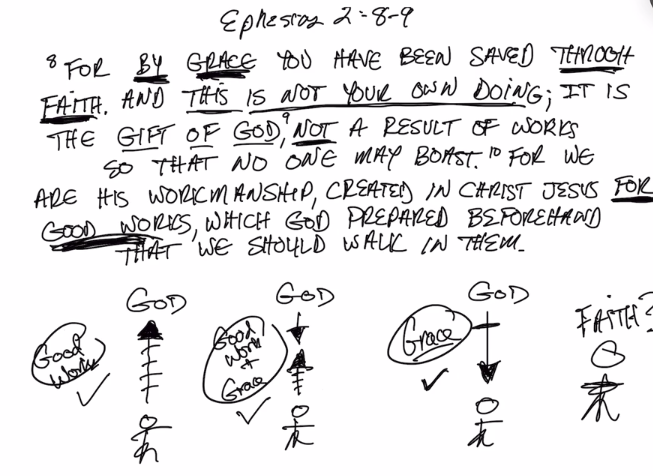 Ephesians 2:8-9
8 FOR BY GRACE YOU HAVE BEEN SAVED THROUGH
FAITH. AND THIS IS NOT YOUR OWN DOING; IT IS
THE GIFT OF GOD, 9 NOT A RESULT OF WORKS
SO THAT NO ONE MAY BOAST. 10 FOR WE
ARE HIS WORKMANSHIP, CREATED IN CHRIST JESUS FOR
GOOD WORKS, WHICH GOD PREPARED BEFOREHAND
THAT WE SHOULD WALK IN THEM.
GOD
Good
Works
GOD
Good
Work
+
Grace
GOD
Grace
FAITH?